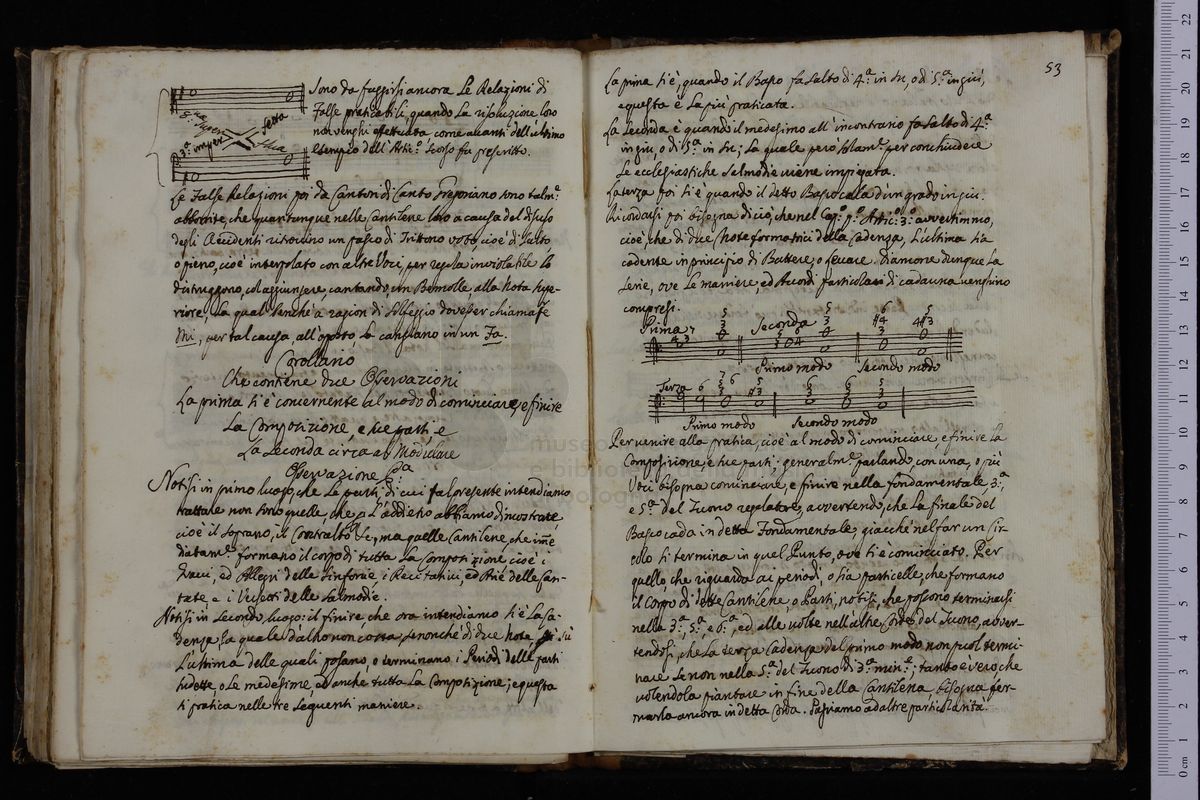 Sono da fuggirsi ancora Le Relazioni di
False praticabili, quando La risoluzione loro
non venghi effettuata come avanti dell'ultimo
esempio dell'Artic:º scorso fu prescritto.
8:va super
Sesta
3:ª imper
Le False Relazioni poi da Cantori di Canto Gregoriano sono talm:e
abborrite, che quantunque nelle Cantilene loro a causa del disuso
degli Accidenti ritrovino un passo di Trittono voto cioè di salto
o pieno, cioè interpolato con altre Voci, per regola inviolabile lo
distruggono, col aggiungere, cantando, un Bemolle alla Nota supe-
riore, La qual benchè a ragion di Solfeggio dovesser chiamare
Mi, per tal causa all'oposto La cangiano in un Fa.
Corollario
Che contiene due Osservazioni
La prima si è concernente al modo di cominciare, e finire
La Composizione, e sue parti e
La Seconda circa al Modulare
Osservazione P:ª
Notisi in primo luogo, che Le parti, di cui fa l presente intendiamo
trattare non sono quelle, che a L'addietro abbiamo dimostrate,
cioè il Soprano, il Contralto &c, ma quelle Cantilene, che im̃e
diatam:e formano il corpo di tutta La Composizione cioè i
Gravi, ed Allegri delle Sinfonie i Recitativi, ed Arie delle Can-
tate e i Versetti delle Salmodie.
Notisi in Secondo luogo: il finire che ora intendiamo si è La Ca-
denza, La quale d'altro non costa, se non che di due Note
L'ultima delle quali posano, o terminano i Periodi delle parti
sudette, o Le medesime, ed anche tutta La Composizione; e questa
si pratica nelle tre seguenti maniere.
53
La prima si è, quando il Basso fa salto di 4:ª in su, o di 5:ª in giù,
e questa è La più praticata.
La Seconda è quando il medesimo all'incontrario fa salto di 4:ª
in giù, o di 5:ª in su; La quale però solam:e per conchiudere
Le ecclesiastiche Salmodie viene impiegata.
La terza poi si è quando il detto Basso cala d'un grado in giù.
Ricordarsi poi bisogna di ciò, che nel Cap: pº Artic: 3:º avvertimmo,
cioè che di due Note formatrici della Cadenza, L'ultima sia
cadente in principio di Battere, o Levare. Diamone dunque La
Serie, ove Le maniere, ed Acordi particolari di cadauna venghino
compresi.
Prima
Seconda
Primo modo Secondo modo
Terza
Primo modo Secondo modo
Per venire alla pratica, cioè al modo di cominciare, e finire La
Composizione, e sue parti; generalm:e parlando con una, o più
Voci bisogna cominciare, e finire nella fondamentale 3:ª,
e 5:ª del Tuono regolatore, avvertendo, che La finale del
Basso cada in detta Fondamentale, giacchè nel far un Cir-
colo si termina in quel Punto, ove si è cominciato. Per
quello, che riguarda ai periodi, o sia particelle, che formano
il Corpo di dette Cantilene, o Parti, notisi, che possono terminarsi
nella 3:ª, 5:ª, e 6:ª, ed alle volte nell'altre Corde del Tuono, avver-
tendosi, che La terza Cadenza del primo modo non puol termi-
nare se non nella 5:ª del Tuono di 3:ª min:e; tanto e vero, che
volendola piantare in fine della Cantilena bisogna fer-
marla ancora in detta Corda. Passiamo ad altre particolarità.